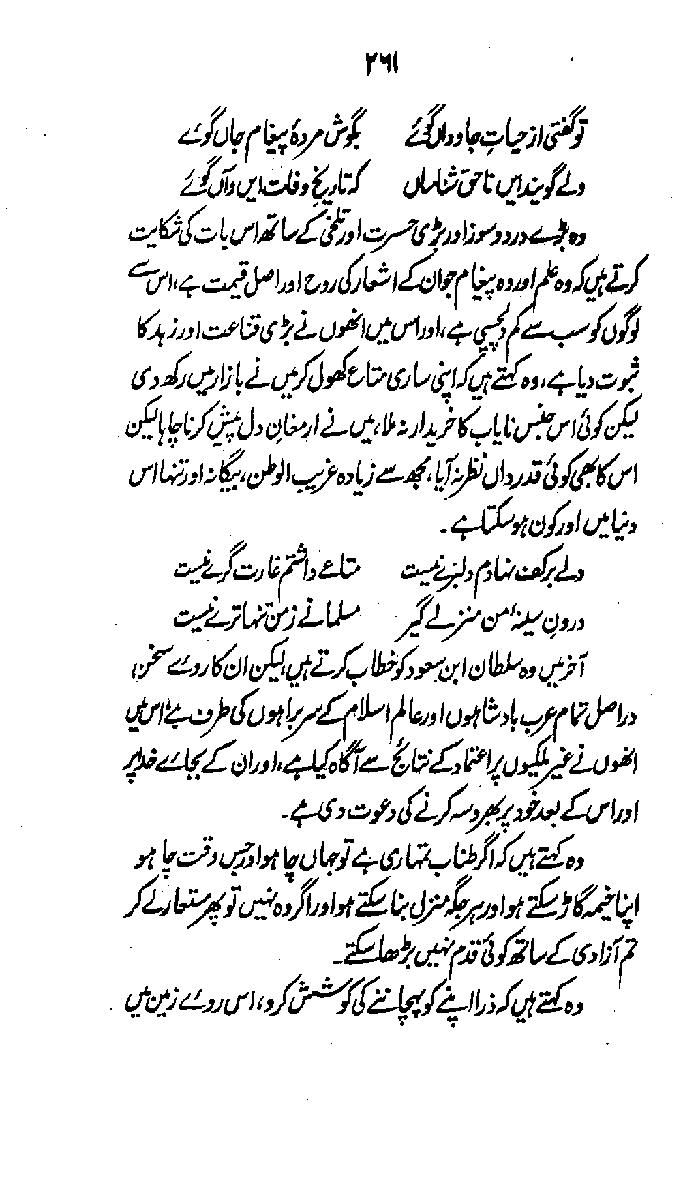 ۲۶۱
تو گفتی از حیاتِ جاوداں گوئے   بگوشِ مردۂ پیغام جاں گوئے
ولے گویند ایں ناحق شناساں   کہ تاریخِ وفات این و آں گوئے
وہ بڑے درد و سوز اور بڑی حسرت اور تلخی کے ساتھ اس بات کی شکایت
کرتے ہیں کہ وہ علم اور وہ پیغام جو ان کے اشعار کی روح اور اصل قیمت ہے، اس سے
لوگوں کو سب سے کم دلچسپی ہے، اور اس میں انھوں نے بڑی قناعت اور زہد کا
ثبوت دیا ہے، وہ کہتے ہیں کہ اپنی ساری متاع کھول کر میں نے بازار میں رکھ دی
لیکن کوئی اس جنس نایاب کا خریدار نہ ملا، میں نے ارمغانِ دل پیش کرنا چاہا لیکن
اس کا بھی کوئی قدرداں نظر نہ آیا، مجھ سے زیادہ غریب الوطن، بیگانہ اور تنہا اس
دنیا میں اور کون ہو سکتا ہے۔
دلے برکف نہادم دلبرے نیست   متاعے داشتم غارت گرے نیست
درونِ سینۂ من منزلے گیر   مسلمانے زمن تنہا ترے نیست
آخر میں وہ سلطان ابن سعود کو خطاب کرتے ہیں، لیکن ان کا روے سخن
دراصل تمام عرب بادشاہوں اور عالم اسلام کے سربراہوں کی طرف ہے، اس میں
انھوں نے غیر ملکیوں پر اعتماد کے نتائج سے آگاہ کیا ہے، اور ان کے بجائے خدا پر
اور اس کے بعد خود پر بھروسہ کرنے کی دعوت دی ہے۔
وہ کہتے ہیں کہ اگر طناب تمہاری ہے تو جہاں چاہو اور جس وقت چاہو
اپنا خیمہ گاڑ سکتے ہو اور ہر جگہ منزل بنا سکتے ہو اور اگر وہ نہیں تو پھر مستعار لے کر
تم آزادی کے ساتھ کوئی قدم نہیں بڑھا سکتے۔
وہ کہتے ہیں کہ ذرا اپنے کو پہچاننے کی کوشش کرو، اس روے زمین میں